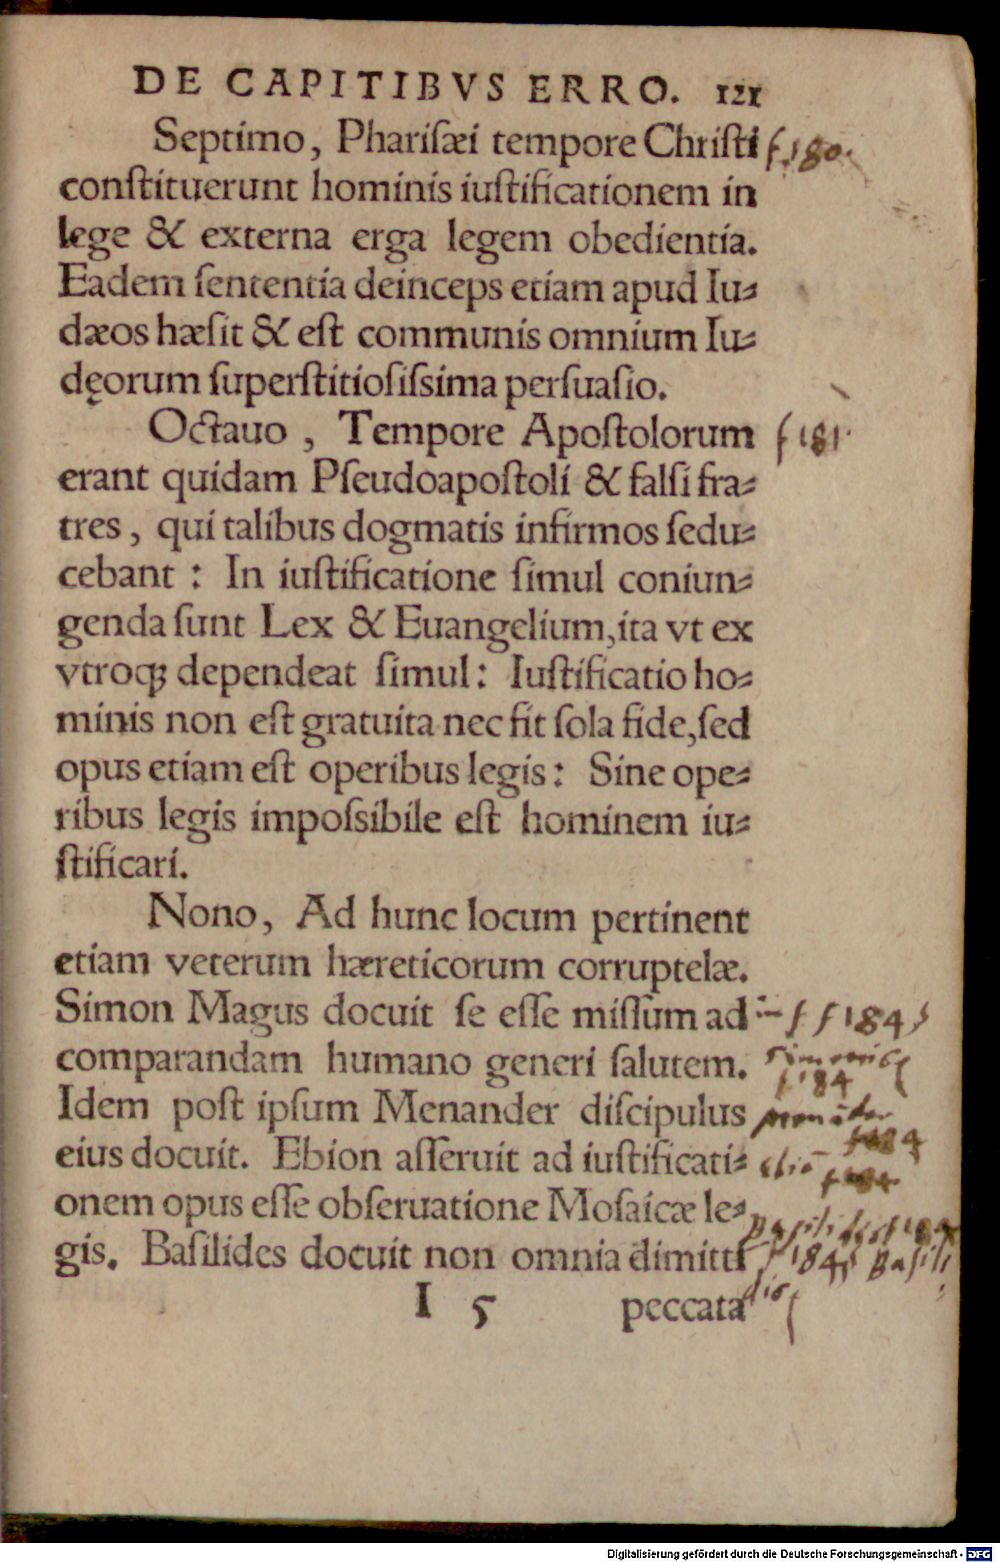 DE CAPITIBVS ERRO. 121
Septimo, Phariſæi tempore Chriſti
conſtituerunt hominis iuſtificationem in
lege & externa erga legem obedientia.
Eadem ſententia deinceps etiam apud Iu⸗
dæos hæſit & eſt communis omnium Iu⸗
dęorum ſuperſtitioſiſsima perſuaſio.
Octauo, Tempore Apoſtolorum
erant quidam Pſeudoapoſtoli & falſi fra⸗
tres, qui talibus dogmatis infirmos ſedu⸗
cebant: In iuſtificatione ſimul coniun⸗
genda ſunt Lex & Euangelium, ita vt ex
vtroq; dependeat ſimul: Iuſtificatio ho⸗
minis non eſt gratuita nec fit ſola fide, ſed
opus etiam eſt operibus legis: Sine ope⸗
ribus legis impoſsibile eſt hominem iu⸗
ſtificari.
Nono, Ad hunc locum pertinent
etiam veterum hæreticorum corruptelæ.
Simon Magus docuit ſe eſſe miſſum ad
comparandam humano generi ſalutem.
Idem poſt ipſum Menander diſcipulus
eius docuit. Ebion aſſeruit ad iuſtificati⸗
onem opus eſſe obſeruatione Moſaicæ le⸗
gis. Baſilides docuit non omnia dimitti
I 5 peccata
f 180.
f 181.
f 184
f 184
f 184
f 184
Digitalisierung gefördert durch die Deutsche Forschungsgemeinschaft - DFG